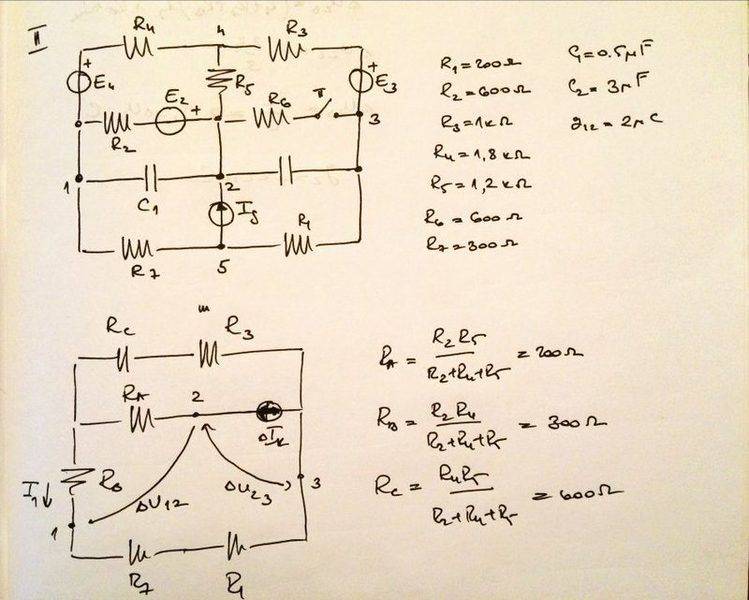 II
R4 4 R3
+ E4 R5 + E3
E2 + R6 π
R2 3
1 C1 2
Ig
R7 5 R1
R1=200Ω
R2=600Ω
R3=1kΩ
R4=1,8kΩ
R5=1,2kΩ
R6=600Ω
R7=300Ω
C1=0.5μF
C2=3μF
q12=2μC
Rc R3
RA 2
ΔIk
I1 RB
ΔU12 ΔU23 3
1
R7 R1
RA = R2R5 / R2+R4+R5 = 200Ω
RB = R2R4 / R2+R4+R5 = 300Ω
Rc = R4R5 / R2+R4+R5 = 600Ω